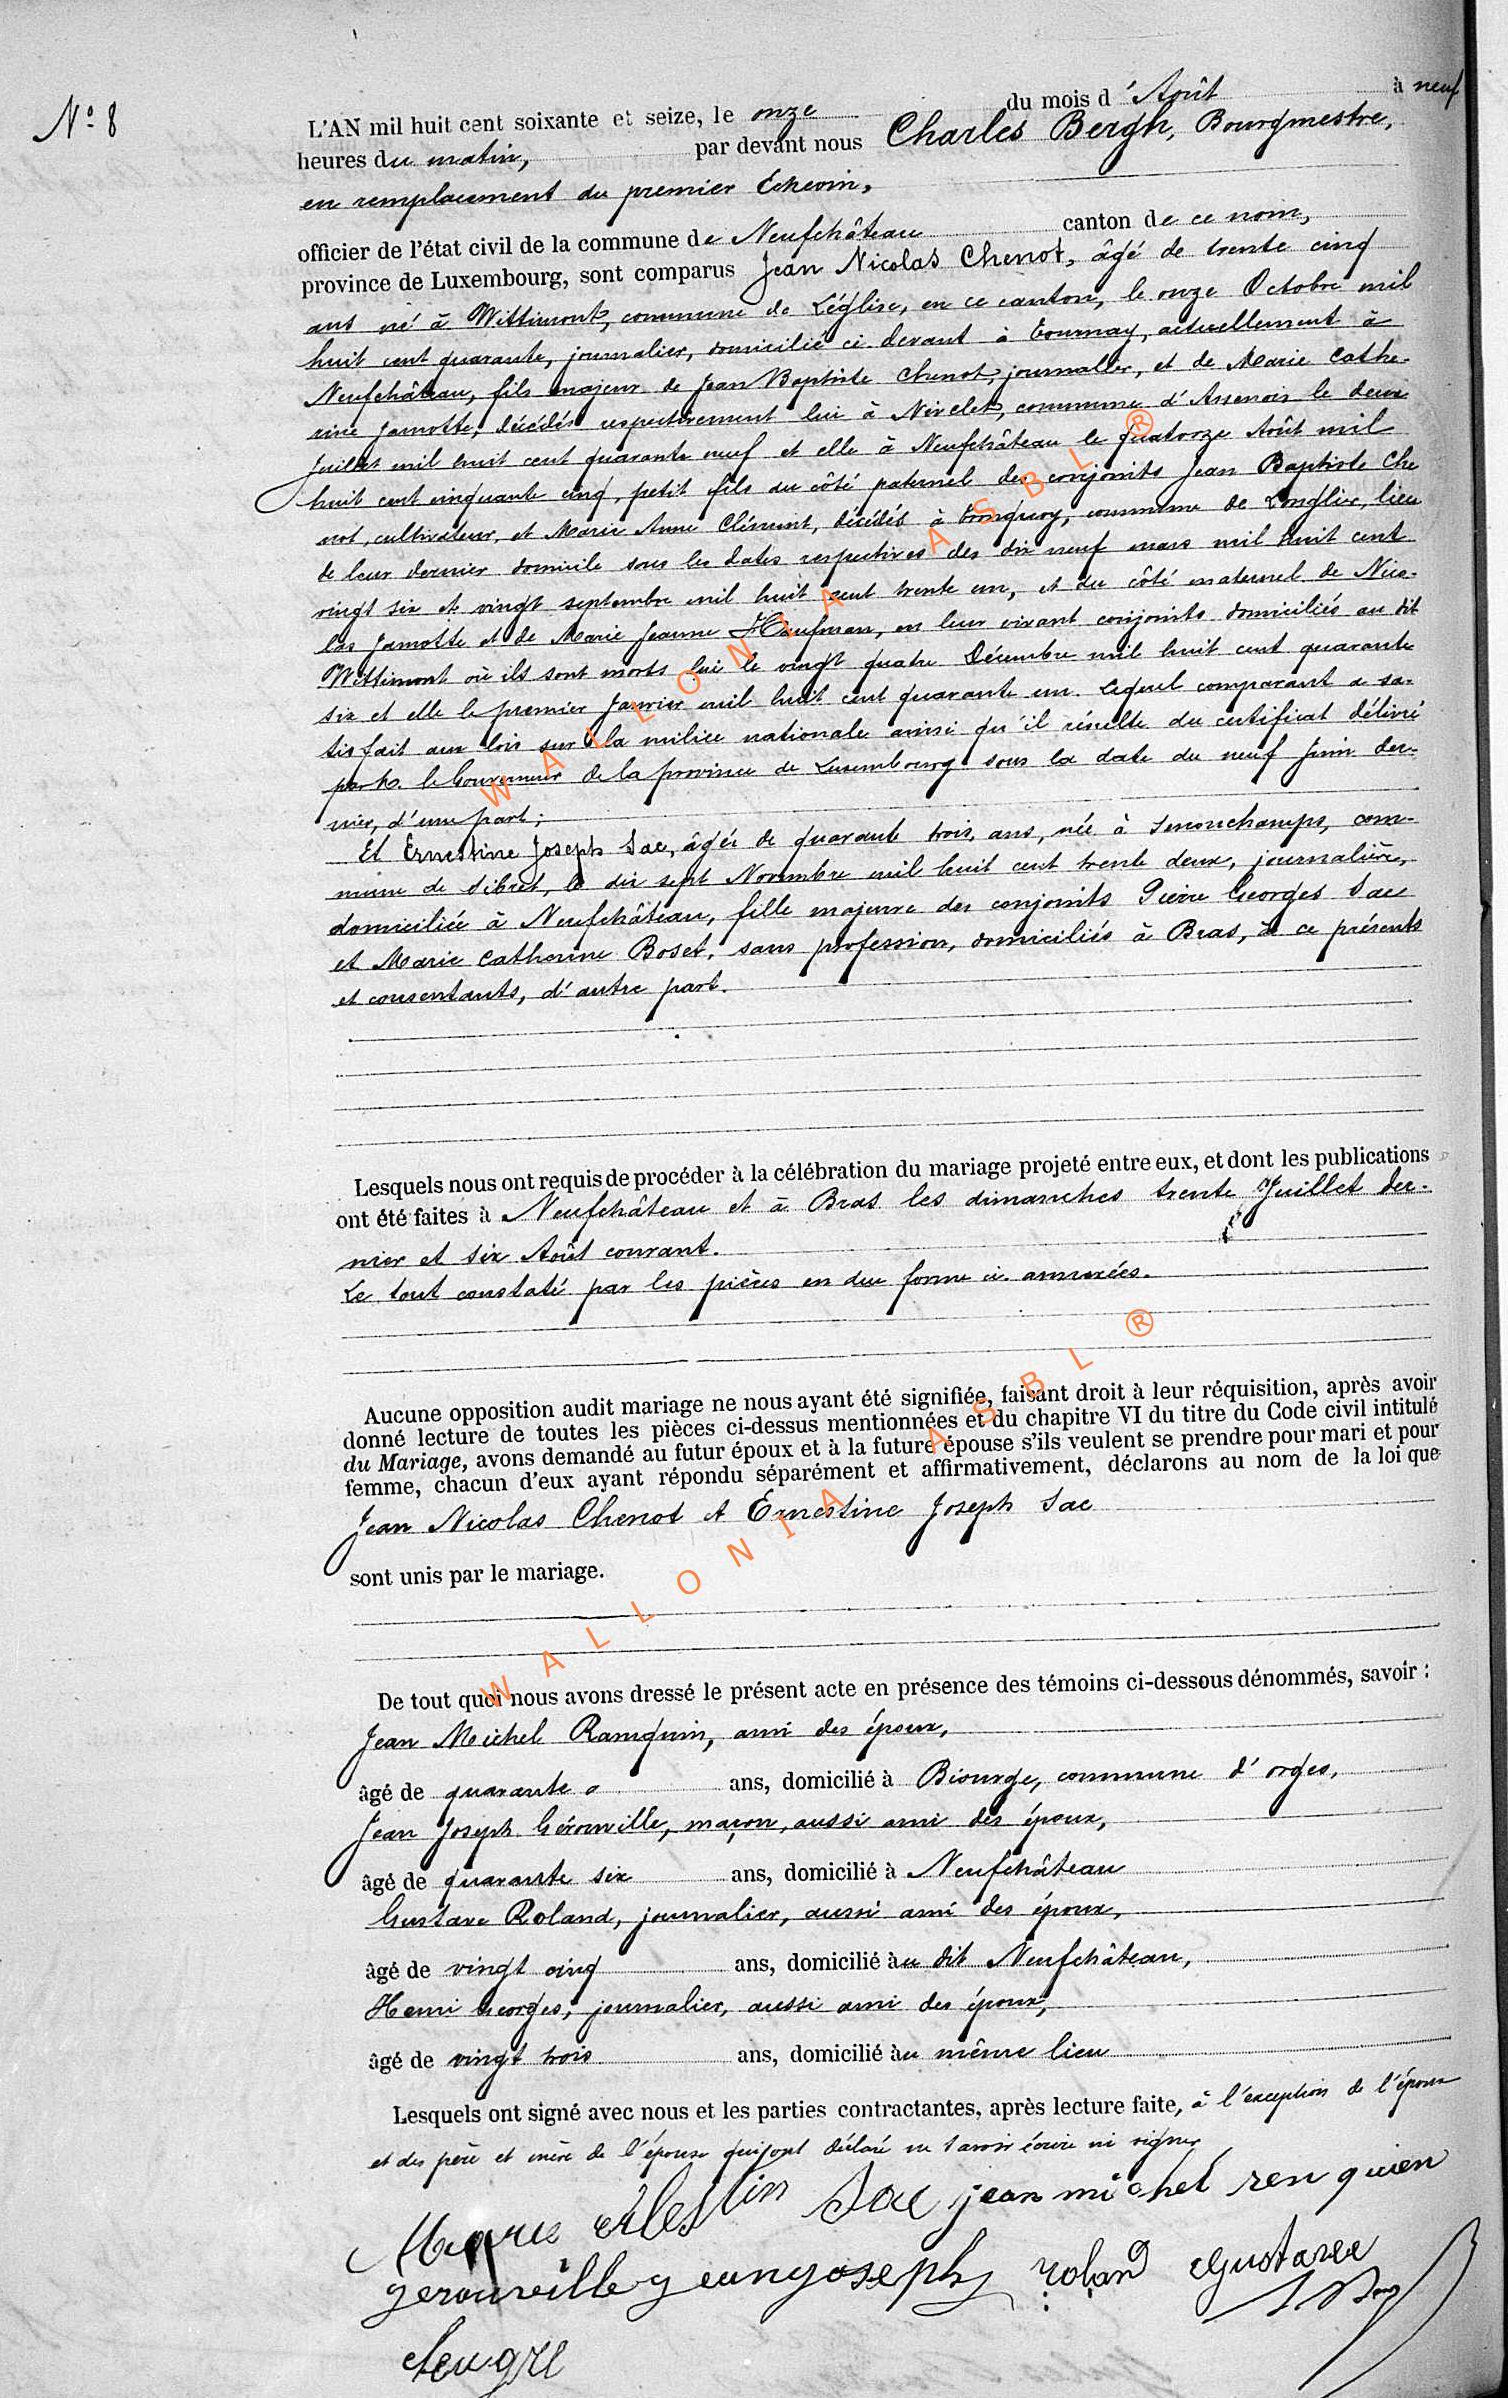 N° 8
L'AN mil huit cent soixante et seize, le onze du mois d'Août à neuf
heures du matin, par devant nous Charles Bergh, Bourgmestre,
en remplacement du premier Echevin,
officier de l'état civil de la commune de Neufchâteau canton de ce nom,
province de Luxembourg, sont comparus Jean Nicolas Chenot, âgé de trente cinq
ans né à Wittimont, commune de Léglise, en ce canton, le onze Octobre mil
huit cent quarante, journalier, domicilié ci-devant à Tournay, actuellement à
Neufchâteau, fils majeur de Jean Baptiste Chenot, journalier, et de Marie Cathe-
rine Jamotte, décédés respectivement lui à Nivelet, commune d'Assenois le deux
Juillet mil huit cent quarante neuf et elle à Neufchâteau le quatorze Août mil
huit cent cinquante cinq, petit fils du côté paternel des conjoints Jean Baptiste Che
not, cultivateur, et Marie Anne Clément, décédés à Tronquoy, commune de Longlier, lieu
de leur dernier domicile sous les dates respectives des dix neuf mars mil huit cent
vingt six et vingt septembre mil huit cent trente un, et du côté maternel de Nico-
las Jamotte et de Marie Jeanne Haufman, en leur vivant conjoints domiciliés au dit
Wittimont où ils sont morts lui le vingt quatre Décembre mil huit cent quarante
six et elle le premier Janvier mil huit cent quarante un. Lequel comparant a sa-
tisfait aux lois sur la milice nationale ainsi qu'il résulte du certificat délivré
par M. le Gouverneur de la province de Luxembourg sous la date du neuf Juin der-
nier, d'une part;
Et Ernestine Joseph Sac, âgée de quarante trois ans, née à Senonchamps, com-
mune de Sibret, le dix sept Novembre mil huit cent trente deux, journalière,
domiciliée à Neufchâteau, fille majeure des conjoints Pierre Georges Sac
et Marie Catherine Boset, sans profession, domiciliés à Bras, à ce présents
et consentants, d'autre part.
Lesquels nous ont requis de procéder à la célébration du mariage projeté entre eux, et dont les publications
ont été faites à Neufchâteau et à Bras les dimanches trente Juillet der-
nier et six Août courant.
Le tout constaté par les pièces en due forme ci-annexées.
Aucune opposition audit mariage ne nous ayant été signifiée, faisant droit à leur réquisition, après avoir
donné lecture de toutes les pièces ci-dessus mentionnées et du chapitre VI du titre du Code civil intitulé
du Mariage, avons demandé au futur époux et à la future épouse s'ils veulent se prendre pour mari et pour
femme, chacun d'eux ayant répondu séparément et affirmativement, déclarons au nom de la loi que
Jean Nicolas Chenot et Ernestine Joseph Sac
sont unis par le mariage.
De tout quoi nous avons dressé le présent acte en présence des témoins ci-dessous dénommés, savoir :
Jean Michel Ranquin, ami des époux,
âgé de quarante ans, domicilié à Biourge, commune d'orgeo,
Jean Joseph Gérouville, maçon, aussi ami des époux,
âgé de quarante six ans, domicilié à Neufchâteau
Gustave Roland, journalier, aussi ami des époux,
âgé de vingt cinq ans, domicilié au dit Neufchâteau,
Henri Georges, journalier, aussi ami des époux,
âgé de vingt trois ans, domicilié au même lieu
Lesquels ont signé avec nous et les parties contractantes, après lecture faite, à l'exception de l'époux
et des père et mère de l'épouse qui ont déclaré ne savoir écrire ni signer
Sac jean michel renquien
gerouville jeanjoseph roland Gustave
WALLONIA ASBL ®
WALLONIA ASBL ®